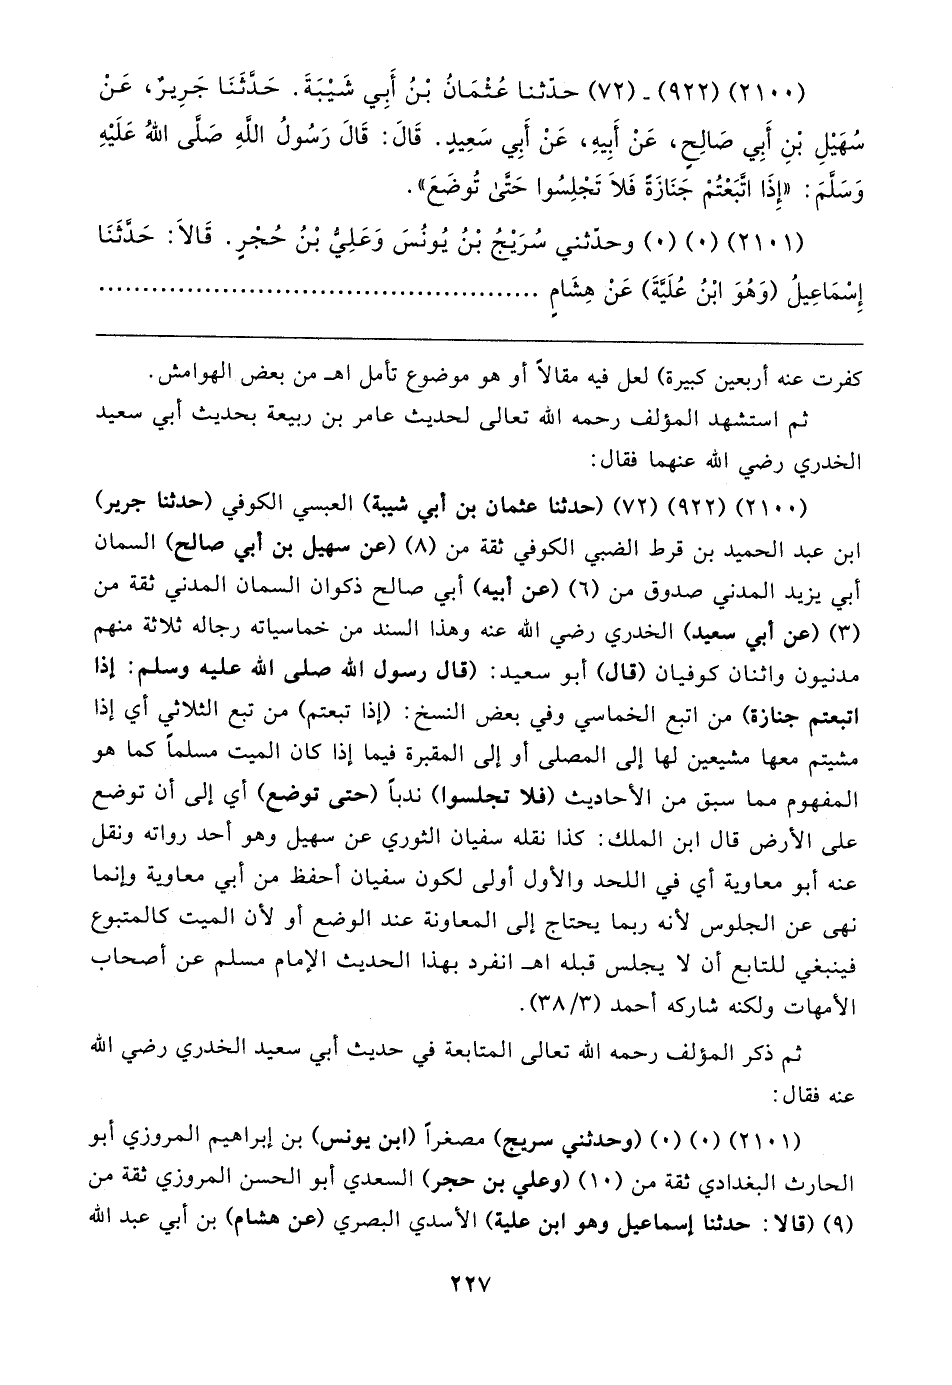 (٢١٠٠) (٩٢٢) - (٧٢) حدّثنا عُثْمَانُ بْنُ أَبِي شَيْبَةَ. حَدَّثَنَا جَرِيرٌ، عَنْ
سُهَيْلِ بْنِ أَبِي صَالِحٍ، عَنْ أَبِيهِ، عَنْ أَبِي سَعِيدٍ. قَالَ: قَالَ رَسُولُ اللَّهِ صَلَّى اللهُ عَلَيْهِ
وَسَلَّمَ: «إِذَا اتَّبَعْتُمْ جَنَازَةً فَلاَ تَجْلِسُوا حَتَّىٰ تُوضَعَ».
(٢١٠١) (٠) (٠) وحدّثني سُرَيْجُ بْنُ يُونُسَ وَعَلِيُّ بْنُ حُجْرٍ. قَالاَ: حَدَّثَنَا
إِسْمَاعِيلُ (وَهُوَ ابْنُ عُلَيَّةَ) عَنْ هِشَامٍ ..................................................
كفرت عنه أربعين كبيرة) لعل فيه مقالاً أو هو موضوع تأمل اهـ من بعض الهوامش.
ثم استشهد المؤلف رحمه الله تعالى لحديث عامر بن ربيعة بحديث أبي سعيد
الخدري رضي الله عنهما فقال:
(٢١٠٠) (٩٢٢) (٧٢) (حدثنا عثمان بن أبي شيبة) العبسي الكوفي (حدثنا جرير)
ابن عبد الحميد بن قرط الضبي الكوفي ثقة من (٨) (عن سهيل بن أبي صالح) السمان
أبي يزيد المدني صدوق من (٦) (عن أبيه) أبي صالح ذكوان السمان المدني ثقة من
(٣) (عن أبي سعيد) الخدري رضي الله عنه وهذا السند من خماسياته رجاله ثلاثة منهم
مدنيون واثنان كوفيان (قال) أبو سعيد: (قال رسول الله صلى الله عليه وسلم: إذا
اتبعتم جنازة) من اتبع الخماسي وفي بعض النسخ: (إذا تبعتم) من تبع الثلاثي أي إذا
مشيتم معها مشيعين لها إلى المصلى أو إلى المقبرة فيما إذا كان الميت مسلماً كما هو
المفهوم مما سبق من الأحاديث (فلا تجلسوا) ندباً (حتى توضع) أي إلى أن توضع
على الأرض قال ابن الملك: كذا نقله سفيان الثوري عن سهيل وهو أحد رواته ونقل
عنه أبو معاوية أي في اللحد والأول أولى لكون سفيان أحفظ من أبي معاوية وإنما
نهى عن الجلوس لأنه ربما يحتاج إلى المعاونة عند الوضع أو لأن الميت كالمتبوع
فينبغي للتابع أن لا يجلس قبله اهـ انفرد بهذا الحديث الإمام مسلم عن أصحاب
الأمهات ولكنه شاركه أحمد (٣/ ٣٨).
ثم ذكر المؤلف رحمه الله تعالى المتابعة في حديث أبي سعيد الخدري رضي الله
عنه فقال:
(٢١٠١) (٠) (٠) (وحدثني سريج) مصغراً (ابن يونس) بن إبراهيم المروزي أبو
الحارث البغدادي ثقة من (١٠) (وعلي بن حجر) السعدي أبو الحسن المروزي ثقة من
(٩) (قالا: حدثنا إسماعيل وهو ابن علية) الأسدي البصري (عن هشام) بن أبي عبد الله
٢٢٧